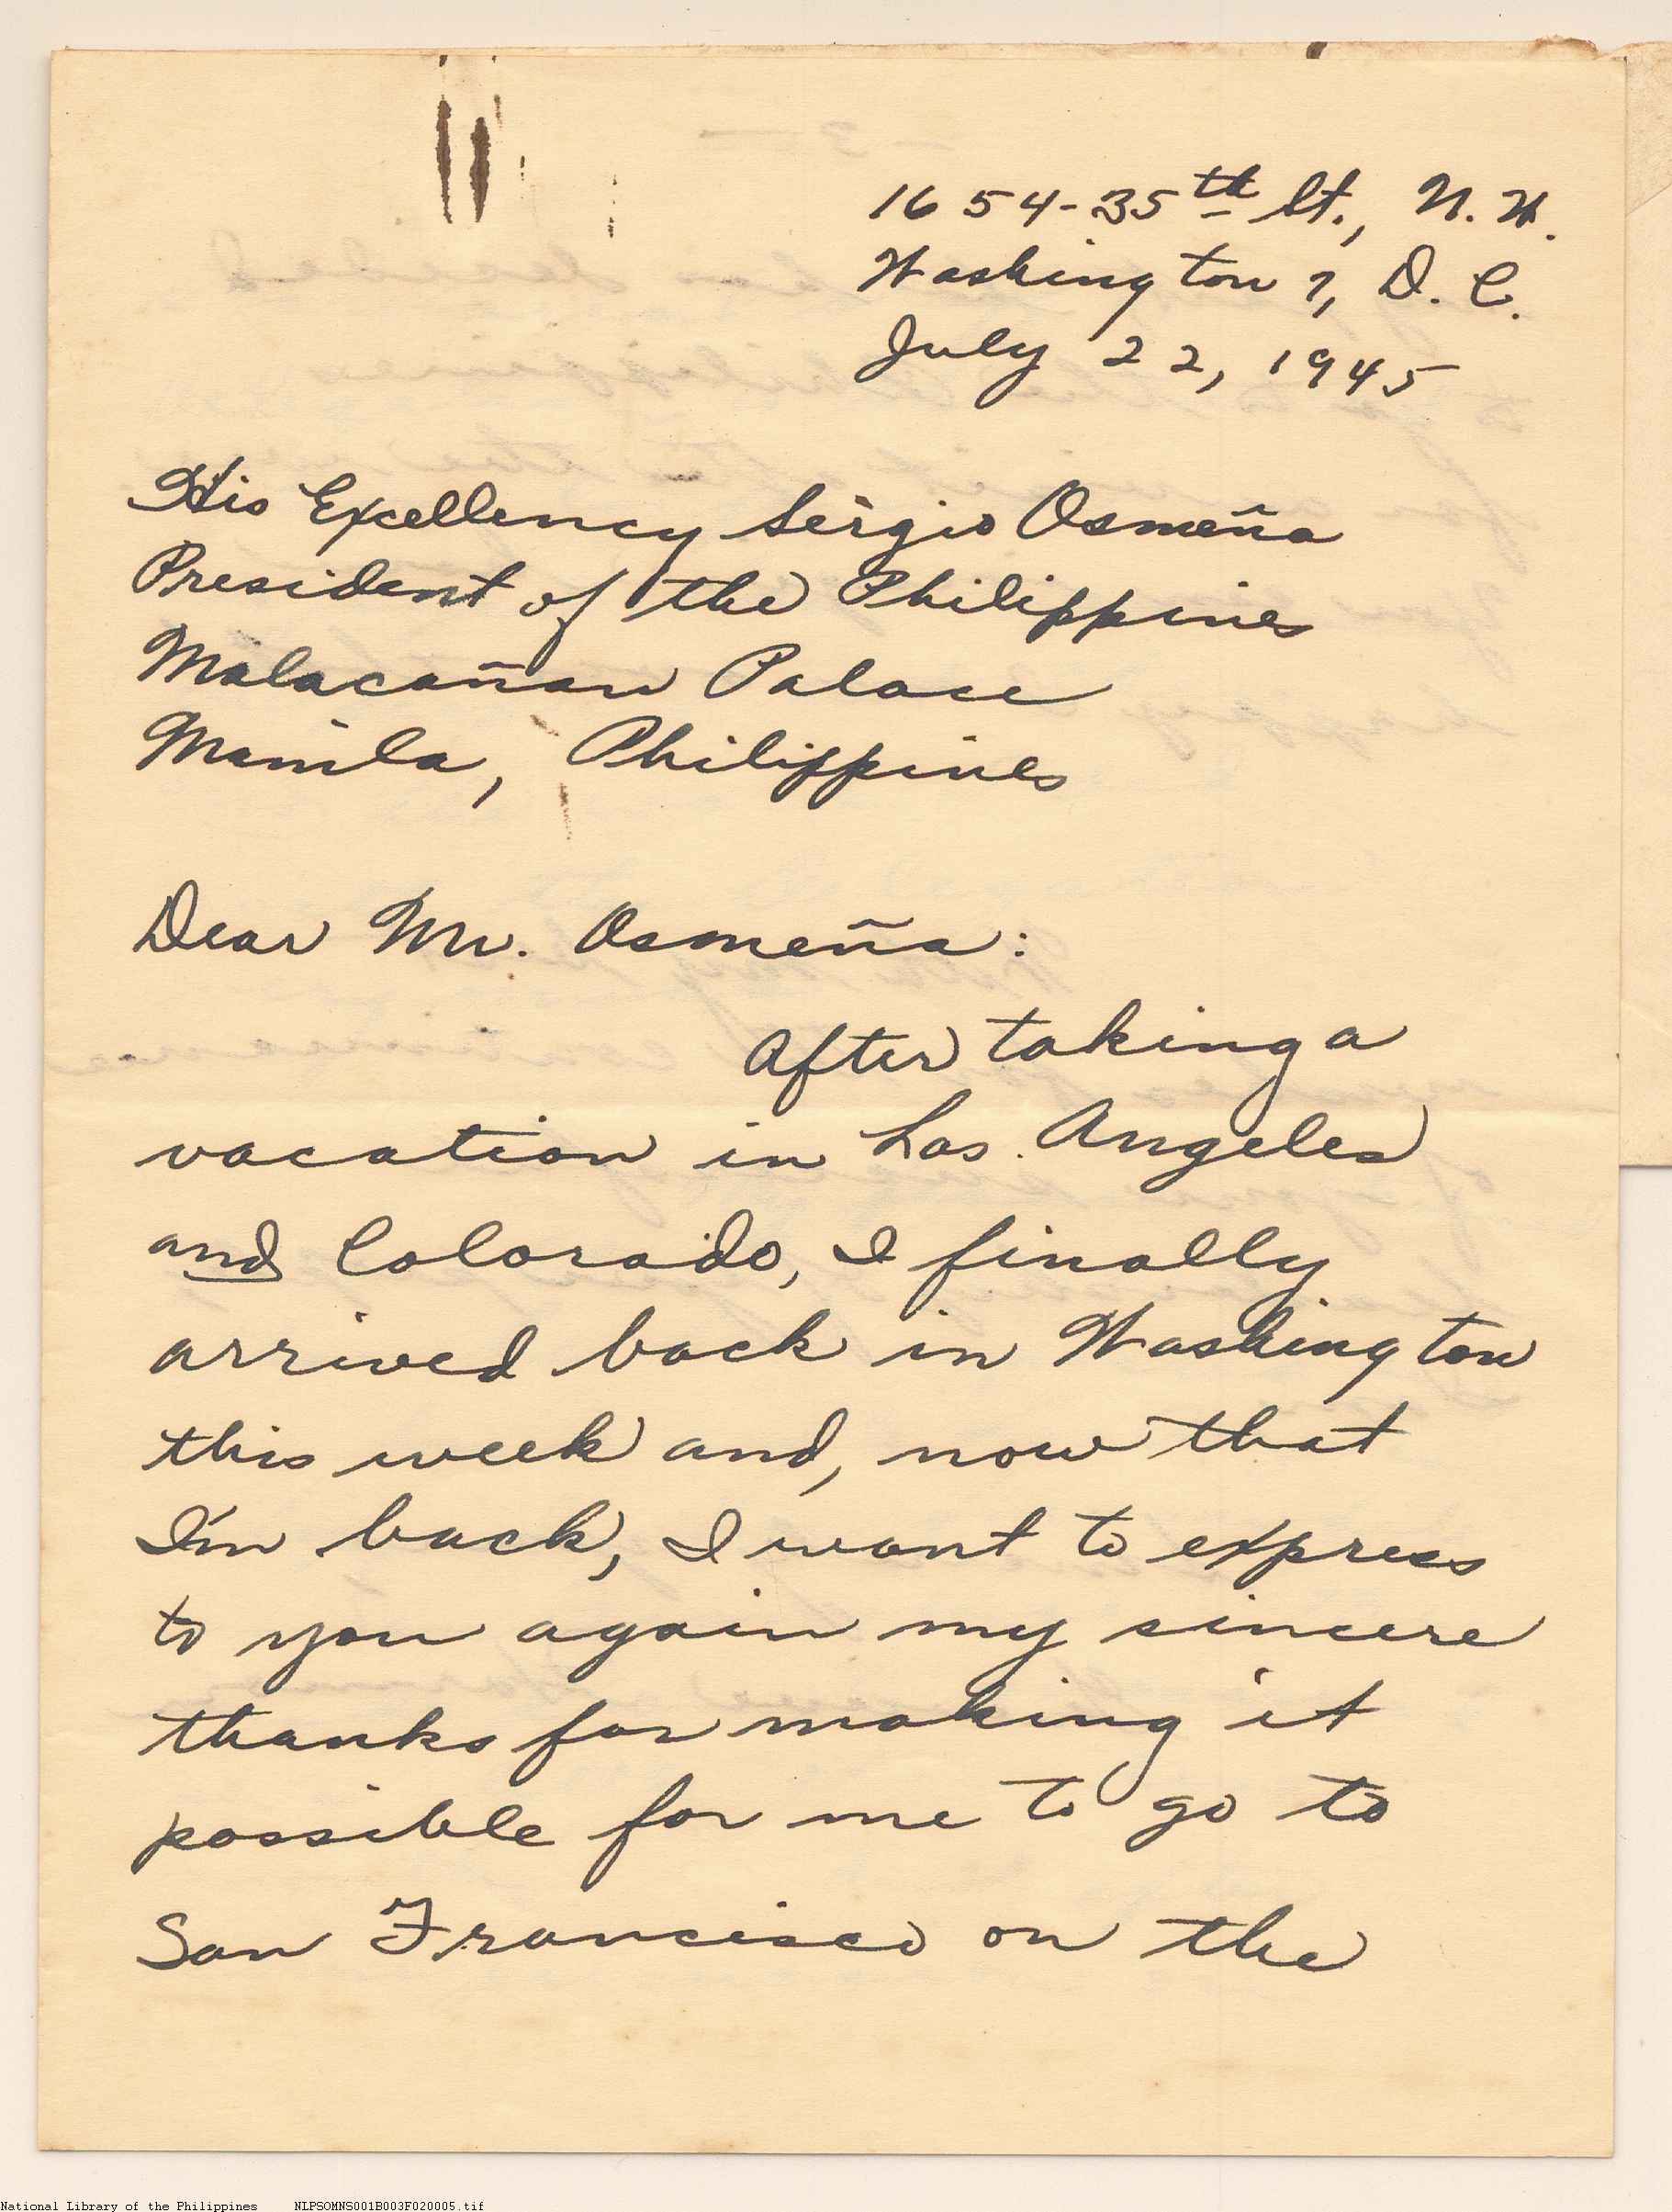 1654-35th St., N.W.
Washington 7, D.C.
July 22, 1945
His Excellency Sergio Osmeña
President of the Philippines
Malacañan Palace
Manila, Philippines
Dear Mr. Osmeña:
After taking a
vacation in Los Angeles
and Colorado, I finally
arrived back in Washington
this week and, now that
I'm back, I want to express
to you again my sincere
thanks for making it
possible for me to go to
San Francisco on the
National Library of the Philippines NLPSOMNS001B003F020005.tif